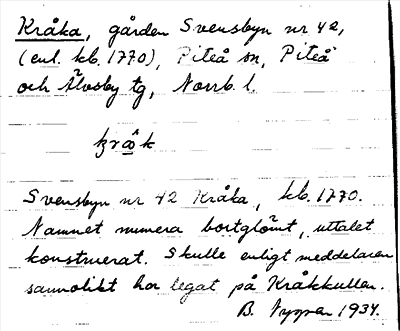 Kråka, gården Svensbyn nr 42,
(enl. kb. 1770), Piteå sn, Piteå
och Älvsby tg, Norrb. l.
krå̂k
Svensbyn nr 42 Kråka, kb. 1770.
Namnet numera bortglömt, uttalet
konstruerat. Skulle enligt meddelaren
sannolikt ha legat på Kråkkullen.
B. 1934.